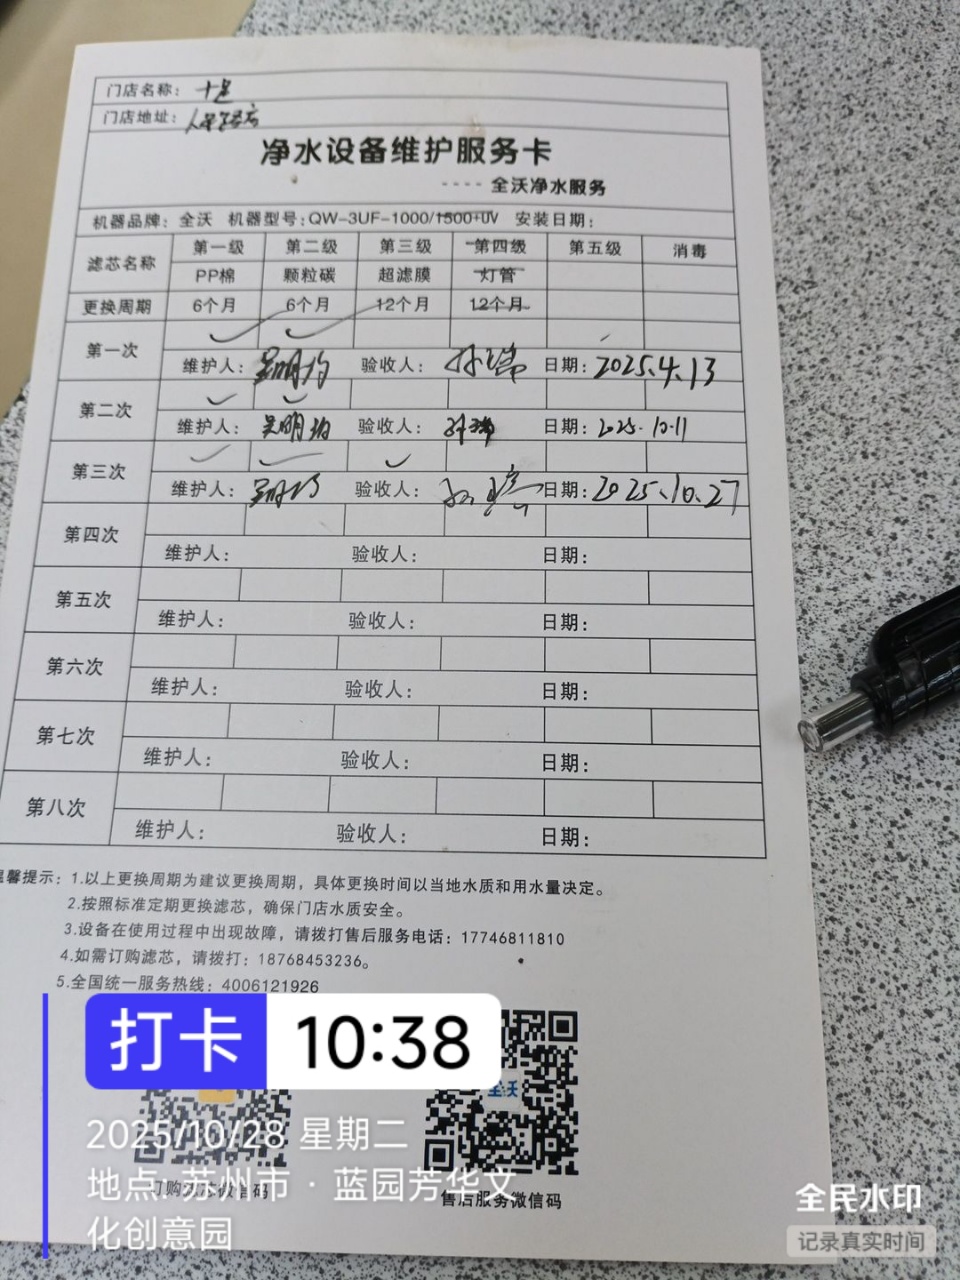 门店名称：十足
门店地址：
净水设备维护服务卡
---- 全沃净水服务
机器品牌：全沃 机器型号：QW-3UF-1000/1500+UV 安装日期：
滤芯名称 第一级 第二级 第三级 第四级 第五级 消毒
PP棉 颗粒碳 超滤膜 灯管
更换周期 6个月 6个月 12个月 12个月
第一次 ✓ ✓
维护人：吴明均 验收人：孙瑞 日期：2025.4.13
第二次 ✓ ✓
维护人：吴明均 验收人：孙瑞 日期：2025.10.11
第三次 ✓ ✓ ✓
维护人：吴明均 验收人：孙瑞 日期：2025.10.27
第四次
维护人： 验收人： 日期：
第五次
维护人： 验收人： 日期：
第六次
维护人： 验收人： 日期：
第七次
维护人： 验收人： 日期：
第八次
维护人： 验收人： 日期：
馨提示：1.以上更换周期为建议更换周期，具体更换时间以当地水质和用水量决定。
2.按照标准定期更换滤芯，确保门店水质安全。
3.设备在使用过程中出现故障，请拨打售后服务电话：17746811810
4.如需订购滤芯，请拨打：18768453236。
5.全国统一服务热线：4006121926
打卡 10:38
全沃
2025/10/28 星期二
订购滤芯微信码
地点 苏州市·蓝园芳华文
化创意园
售后服务微信码
全民水印
记录真实时间